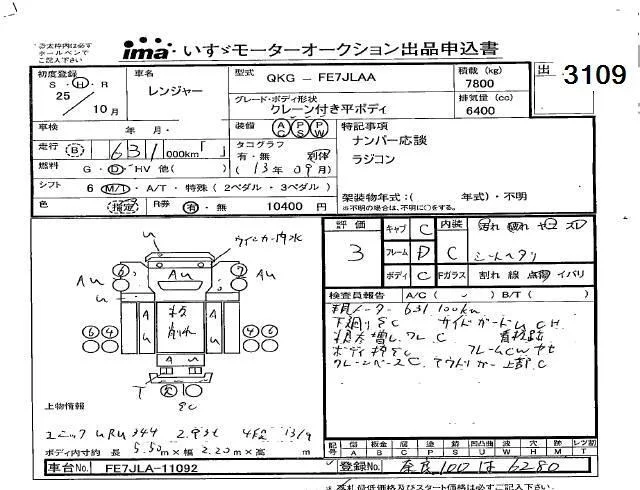 ◇太枠内は必ず
ボールペンで
ご記入下さい
ima いすゞモーターオークション出品申込書
初度登録
S・H・R
25
10月
車名
レンジャー
型式
QKG － FE7JLAA
積載 (kg)
7800
出
3109
グレード・ボディ形状
クレーン付き平ボディ
排気量 (cc)
6400
車検
年 月・
装備
AC PS PW
特記事項
ナンバー応談
ラジコン
走行
B
631,000km「 」
タコグラフ
有・無
(13年09月)
燃料
G・D・HV 他( )
シフト
6 M/T・A/T・特殊(2ペダル・3ペダル)
架装物年式:( 年式)・不明
※不明の場合は、不明に○をする。
色
指定
R券
有・無
10400 円
評価
3
キャブ C
フレーム D
ボディ C
内装
C
Fガラス
汚れ 破れ ヤニ ズレ
シートヘタリ
割れ 線 点傷 イバリ
ウインカー内水
検査員報告
A/C( ) B/T( )
631,100km
下廻りSC サイドガードU CH
板木増し ワレ C
ボディ枠SC フレームCW
クレーンベースC アウトリガー上部C
板
削れ
AU
AU
AU
上物情報
SC
ユニック URU344 2.93t 4段 13/9
ボディ内寸約 長 5.50m×幅 2.20m×高 m
記号
傷 板金 腐 塗 錆 凹凸曲 波 穴 跡 レツ割
A B C P S U W H M T
車台No.
FE7JLA-11092
登録No.
奈良100は6280
※落札最低価格及びスタート価格は必ずご記入下さい。